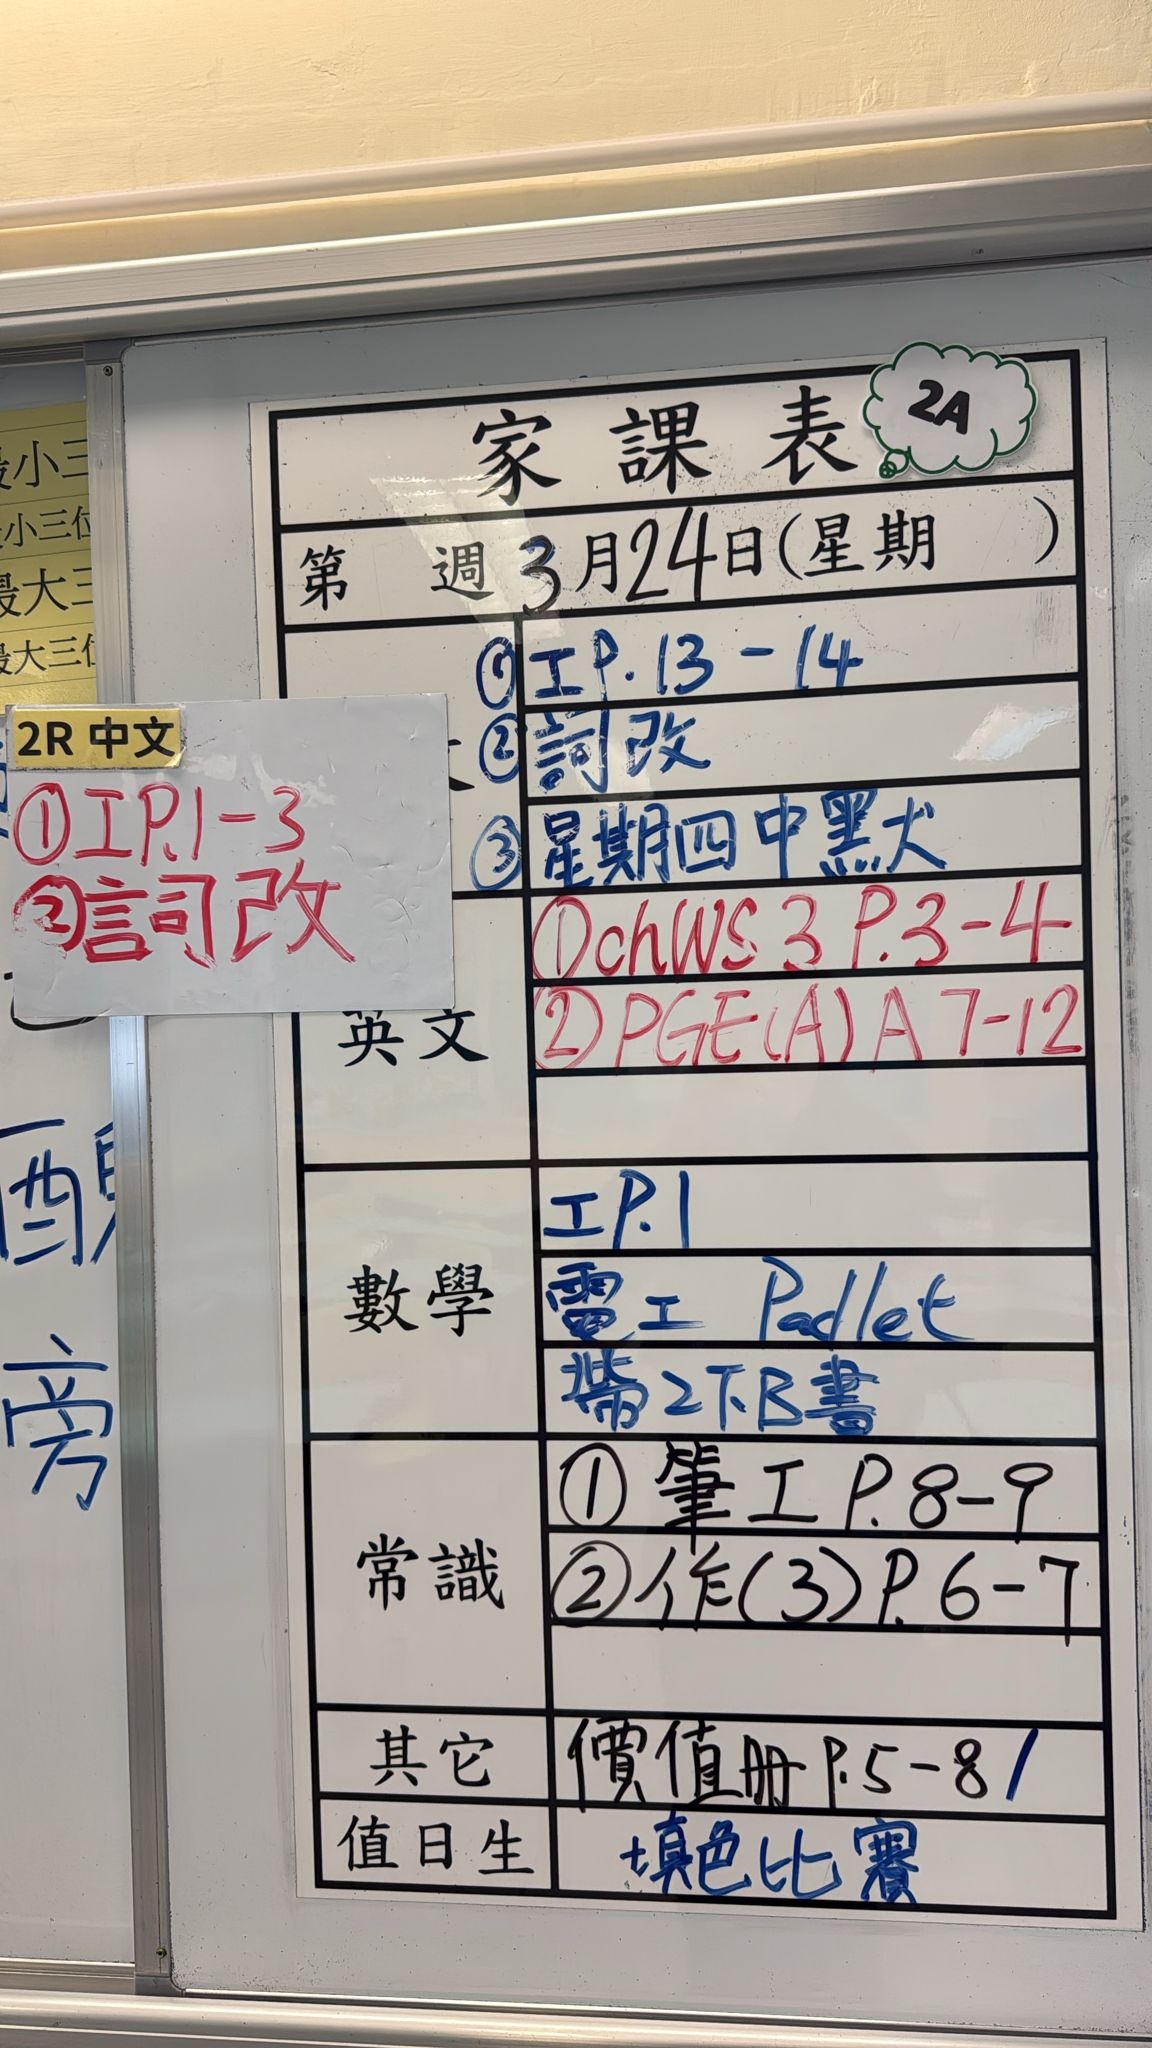 家課表 2A
第 週 3月24日(星期 )
① 工P.13-14
② 詞改
③ 星期四中默犬
2R 中文
① 工P.1-3
② 詞改
英文
① chWS 3 P.3-4
② PGE(A) A 7-12
數學
工P.1
電工 Padlet
帶2下B書
常識
① 筆工 P.8-9
② 作(3) P.6-7
其它
價值冊 P.5-8 /
值日生
填色比賽
最小三
小三位
最大三
最大三位
酉
旁